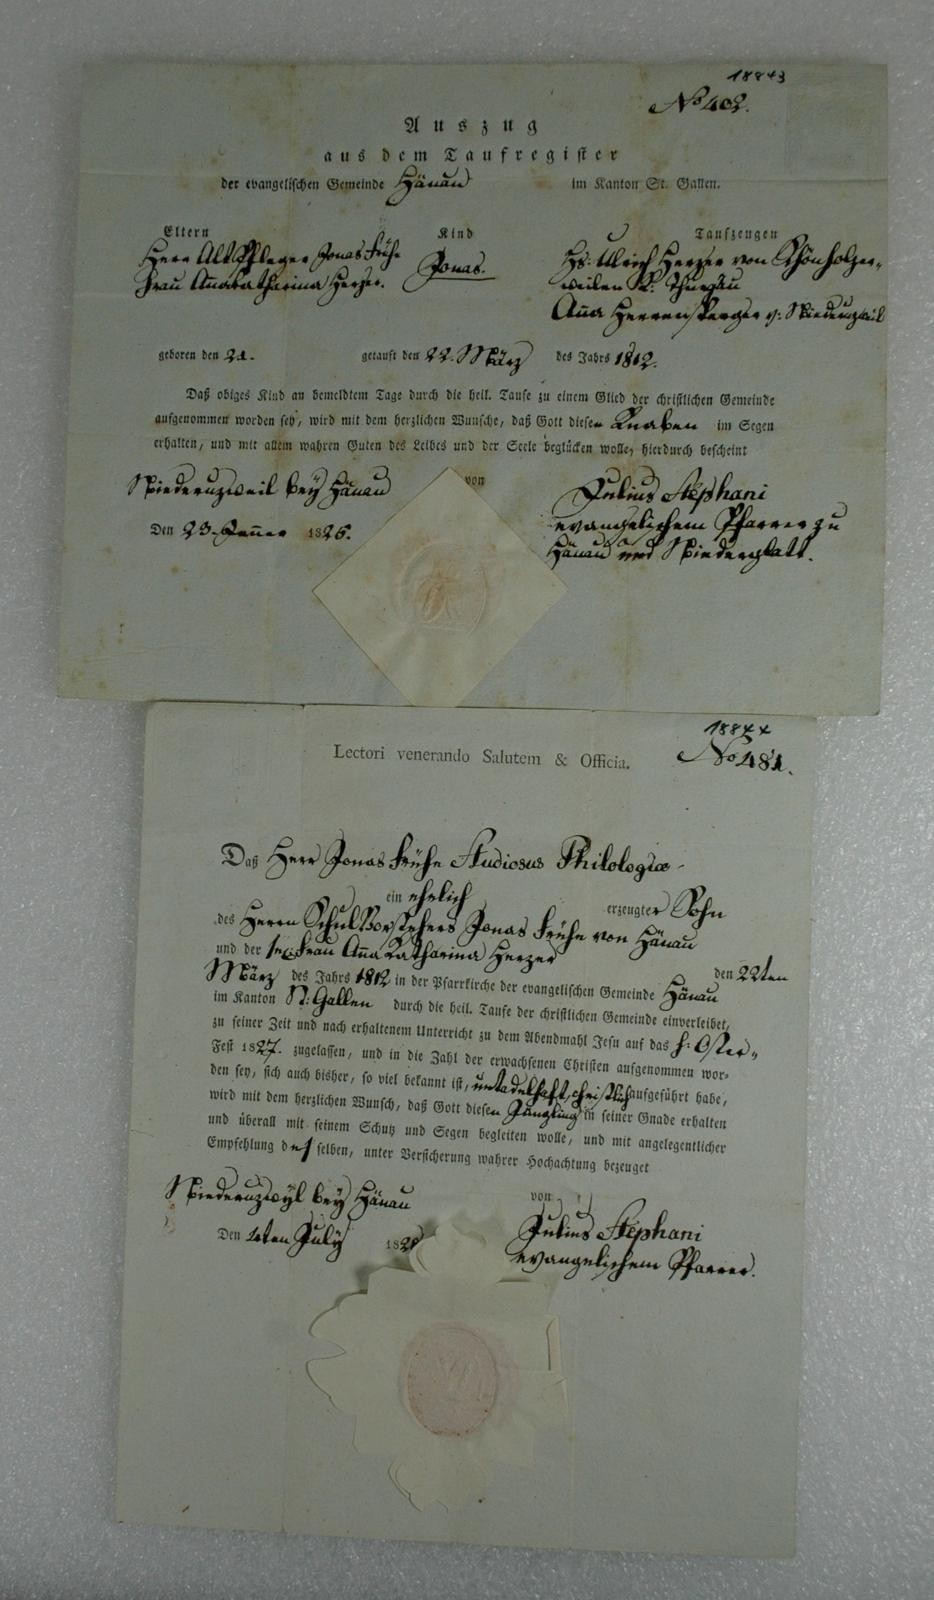 18843
No 402.
Auszug
aus dem Taufregister
der evangelischen Gemeinde Hänau im Kanton St. Gallen.
Eltern Kind Taufzeugen
Herr Alt Pfleger Jonas Frühe Jonas. Hs: Ulrich Herzer von Schönholzer-
Frau Anna Katharina Herzer. weilen K: Thurgäu
Anna Herrensperger v: Niederuzweil
geboren den 21. getauft den 22. März des Jahrs 1812.
Daß obiges Kind an bemeldtem Tage durch die heil. Taufe zu einem Glied der christlichen Gemeinde
aufgenommen worden sey, wird mit dem herzlichen Wunsche, daß Gott diesen Knaben im Segen
erhalten, und mit allem wahren Guten des Leibes und der Seele beglücken wolle, hierdurch bescheint
Niederuzweil bey Hänau von Julius Stephani
Den 23. Jenner 1826. evangelischem Pfarrer zu
Hänau und Niederglatt.
18844
No 481.
Lectori venerando Salutem & Officia.
Daß Herr Jonas Frühe Studiosus Philologiæ
ein ehrlich erzeugter Sohn
des Herrn Schul Vorstehers Jonas Frühe von Hänau
und der Frau Anna Katharina Herzer den 22ten
März des Jahrs 1812 in der Pfarrkirche der evangelischen Gemeinde Hänau
im Kanton St: Gallen durch die heil. Taufe der christlichen Gemeinde einverleibet,
zu seiner Zeit und nach erhaltenem Unterricht zu dem Abendmahl Jesu auf das h: Oster-
Fest 1827. zugelassen, und in die Zahl der erwachsenen Christen aufgenommen wor-
den sey, sich auch bisher, so viel bekannt ist, untadelhaft, christlich aufgeführt habe,
wird mit dem herzlichen Wunsch, daß Gott diesen Jüngling in seiner Gnade erhalten
und überall mit seinem Schutz und Segen begleiten wolle, und mit angelegentlicher
Empfehlung desselben, unter Versicherung wahrer Hochachtung bezeuget
Niederuzwyl bey Hänau von
Den July 182 Julius Stephani
evangelichem Pfarrer.